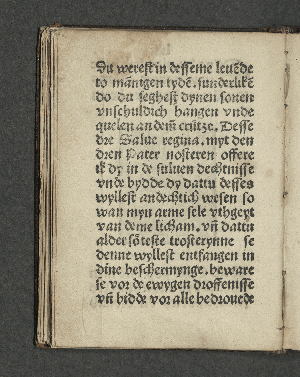 Du werest in desseme leuēde
to mānigen tydē. sunderlikē
do du seghest dynen sonen
vnschuldich hangen vnde
quelen an dem̄ crütze. Desse
dre Salue regina. myt den
dren Pater nosteren offere
ik dy in de suluen dechtnisse
vnde bydde dy dattu desses
wyllest andechtich wesen so
wan myn arme sele vthgeyt
van deme licham. vn̄ dattu
alder sōteste trosterynne se
denne wyllest entfangen in
dine beschermynge. beware
se vor de ewygen droffenisse
vn̄ bidde vor alle bedrouede